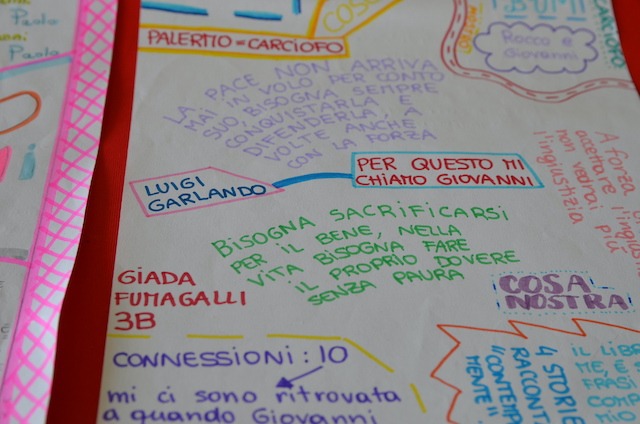 Paolo
Paola
COSA
PALERMO = CARCIOFO
Rocco e
Giovanni
CARCIOFO
LA PACE NON ARRIVA
MAI IN VOLO PER CONTO
SUO, BISOGNA SEMPRE
CONQUISTARLA E
DIFENDERLA, A
VOLTE ANCHE
CON LA FORZA
LUIGI
GARLANDO
PER QUESTO MI
CHIAMO GIOVANNI
A forza
accettare
non vedrai più
l'ingiustizia
BISOGNA SACRIFICARSI
PER IL BENE, NELLA
VITA BISOGNA FARE
IL PROPRIO DOVERE
SENZA PAURA
COSA
NOSTRA
GIADA
FUMAGALLI
3B
CONNESSIONI: 10
mi ci sono ritrovata
a quando Giovanni
4 STORIE
RACCONT
"CONTEMP
MENTE"
IL LIBR
ME, È S
FRASI
COMP
MIO